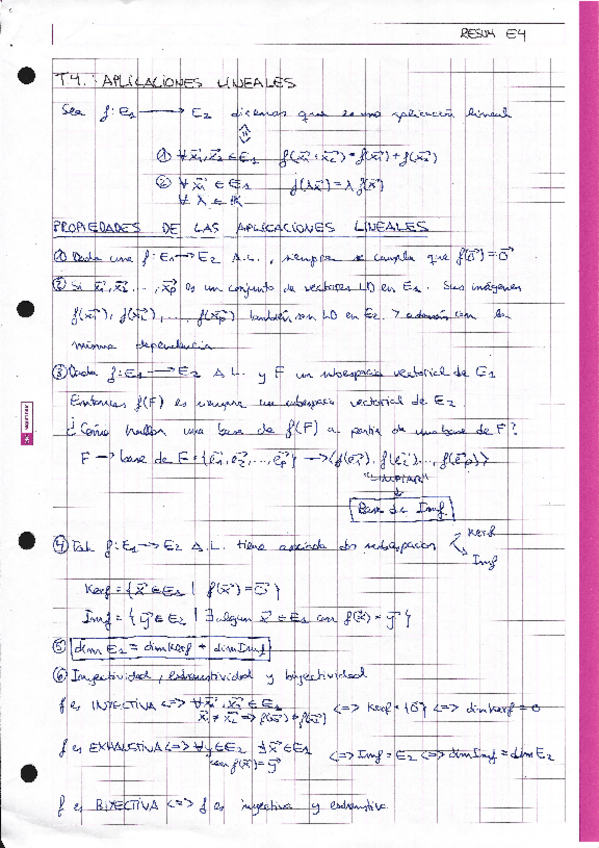 RESUM E4
T4.: APLICACIONES LINEALES
Sea f: E₁ → E₂ diremos que es una aplicación lineal
① ∀ x₁, x₂ ∈ E₁ f(x₁ + x₂) = f(x₁) + f(x₂)
② ∀ x ∈ E₁ f(λx) = λ f(x)
∀ λ ∈ K
PROPIEDADES DE LAS APLICACIONES LINEALES
① Dada una f: E₁ → E₂ A.L., siempre se cumple que f(0) = 0
② Si x₁, x₂, ..., xp es un conjunto de vectores LD en E₁. Sus imágenes
f(x₁), f(x₂), ..., f(xp) también son LD en E₂. Y además con la
misma dependencia
③ Dada f: E₁ → E₂ A.L. y F un subespacio vectorial de E₁
Entonces f(F) es siempre un subespacio vectorial de E₂.
¿Cómo hallar una base de f(F) a partir de una base de F?
F → base de F = {e₁, e₂, ..., ep} → <f(e₁), f(e₂), ..., f(ep)>
"LIMPIAR"
Base de Imf
④ Toda f: E₁ → E₂ A.L. tiene asociados dos subespacios Kerf
Imf
Kerf = {x ∈ E₁ | f(x) = 0}
Imf = {y ∈ E₂ | ∃ algun x ∈ E₁ con f(x) = y}
⑤ dim E₁ = dim Kerf + dim Imf
⑥ Inyectividad, exhaustividad y biyectividad
f es INYECTIVA <=> ∀ x₁, x₂ ∈ E₁ <=> Kerf = {0} <=> dim Kerf = 0
x₁ ≠ x₂ => f(x₁) ≠ f(x₂)
f es EXHAUSTIVA <=> ∀ y ∈ E₂ ∃ x ∈ E₁ <=> Imf = E₂ <=> dim Imf = dim E₂
con f(x) = y
f es BIYECTIVA <=> f es inyectiva y exhaustiva